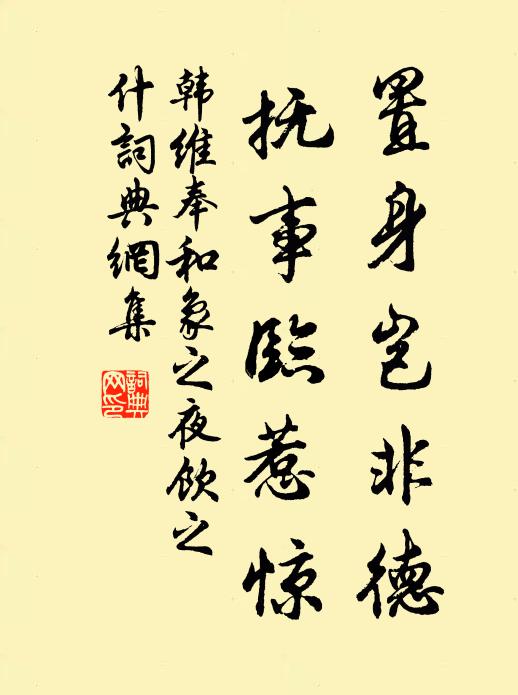 置身岂非德
抚事临惹惊
韩维奉和象之夜饮之
什詞典網集
詞典网印